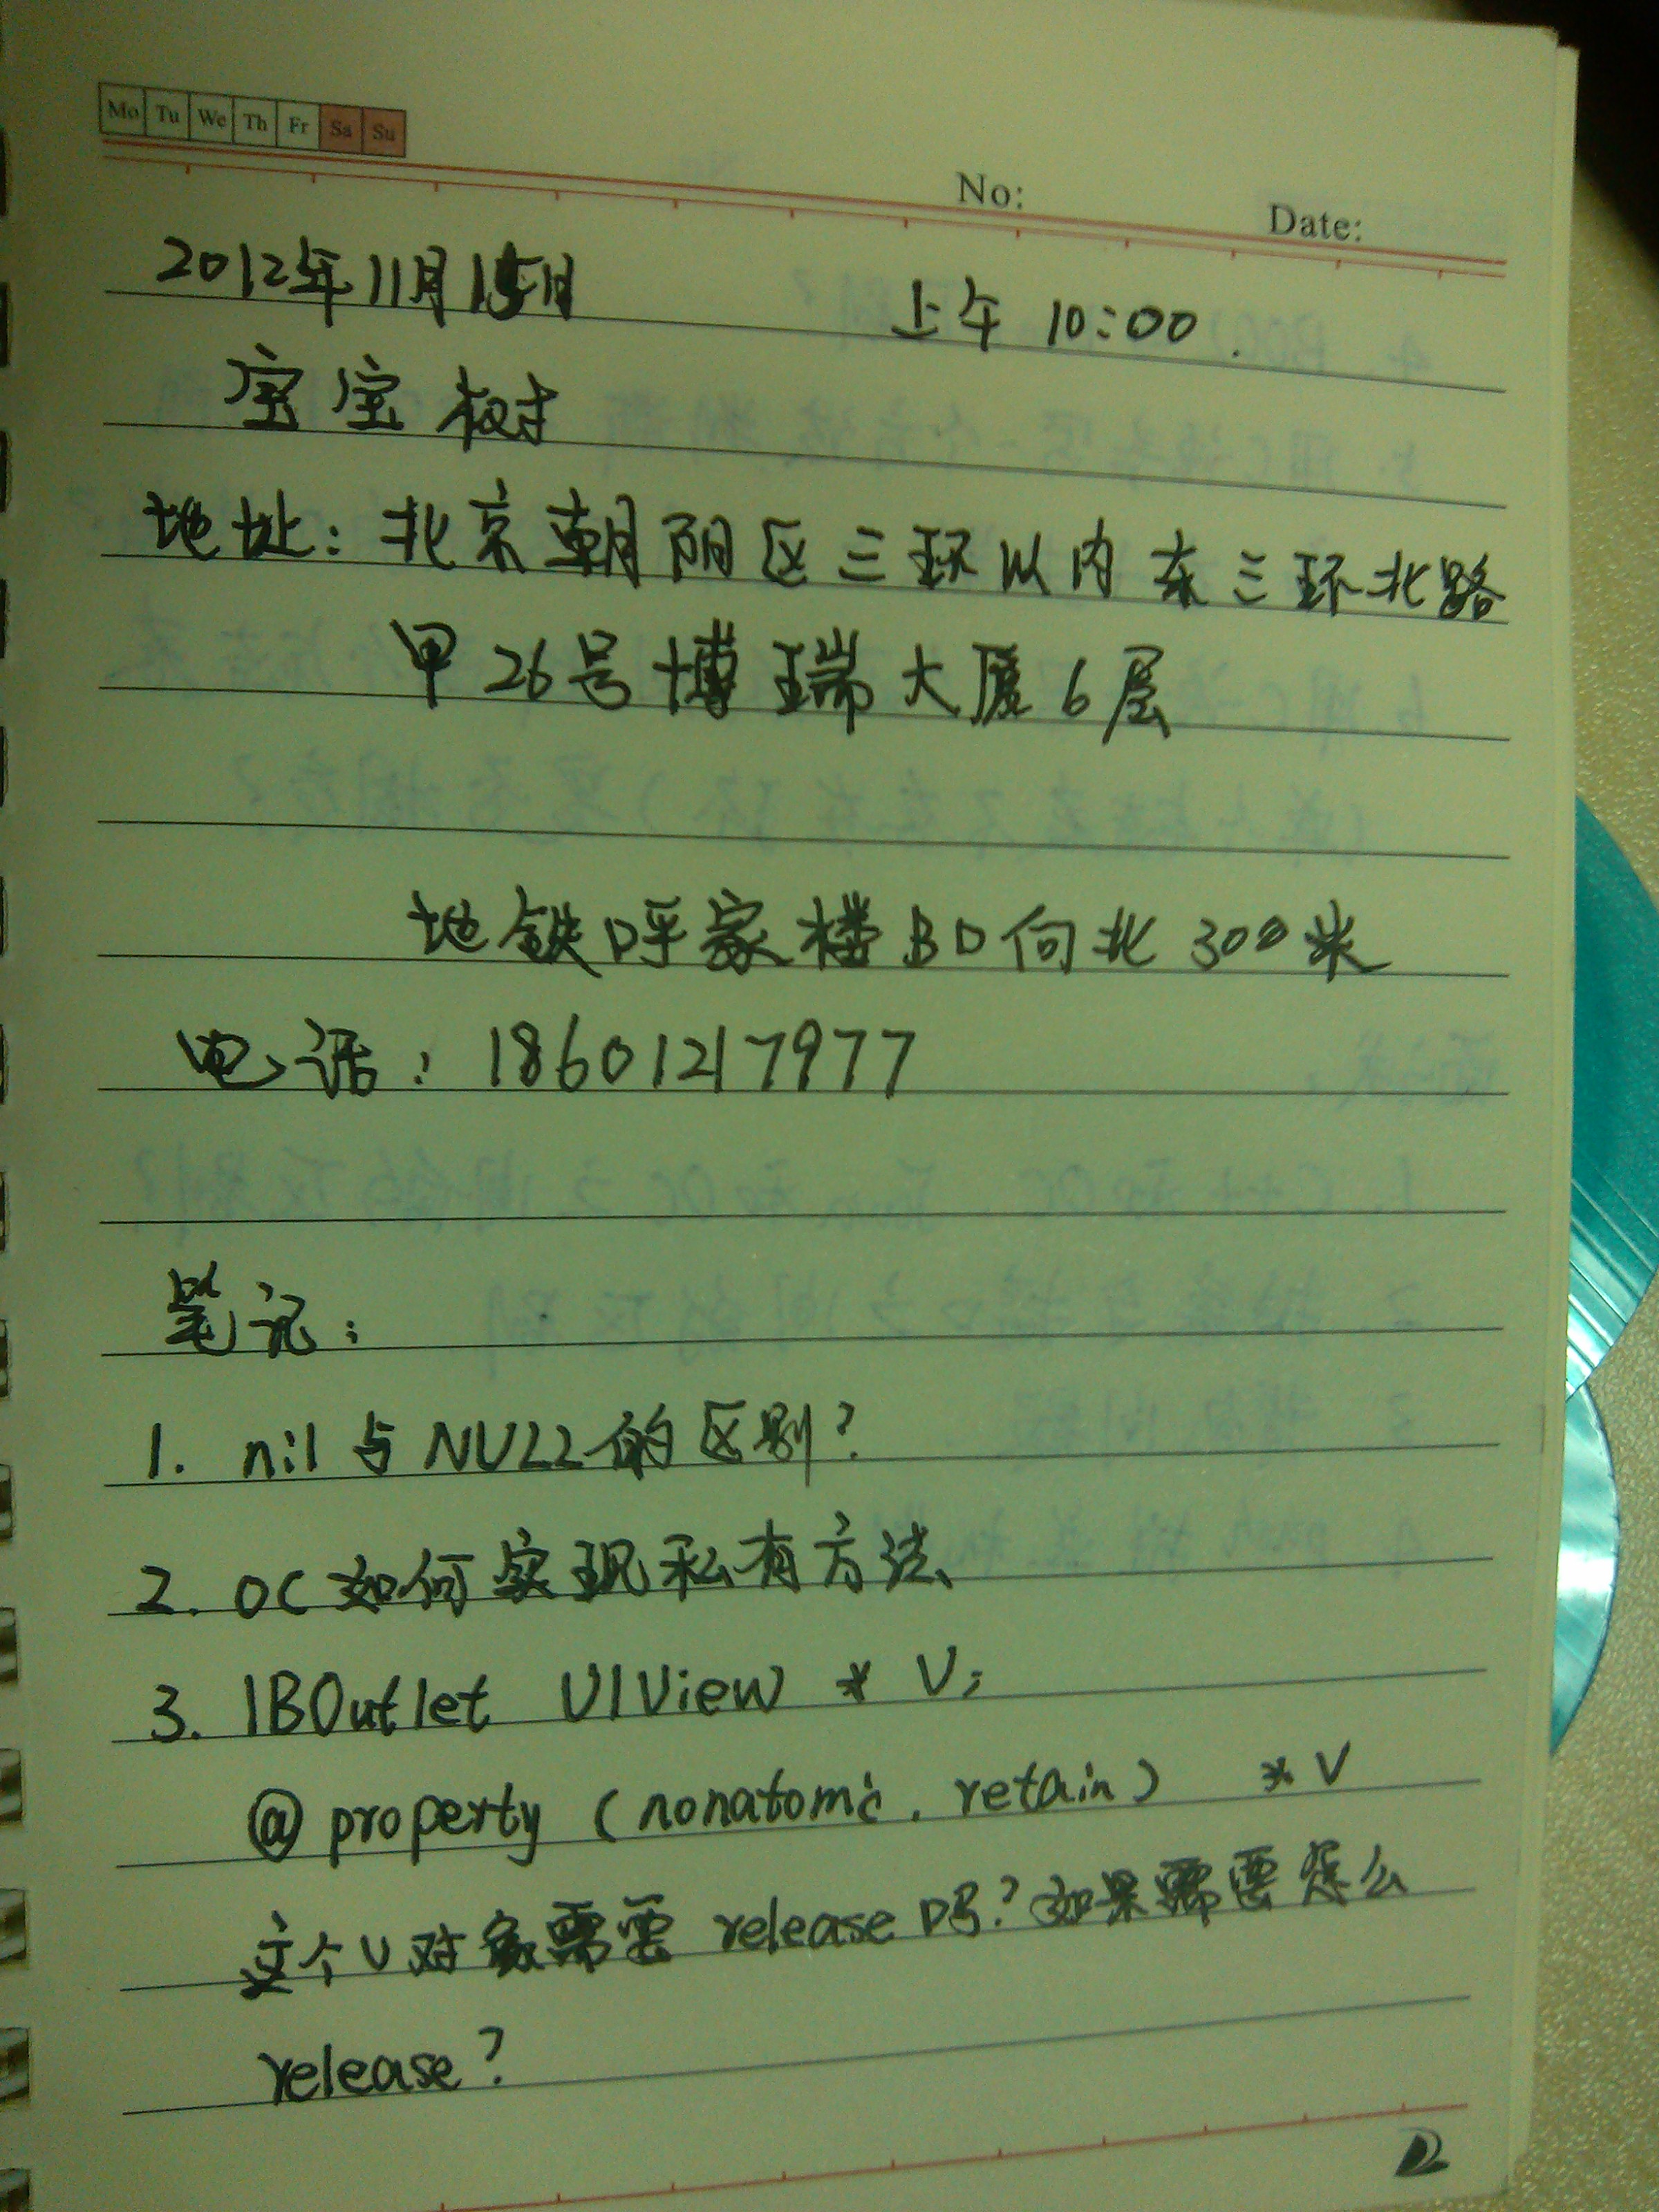 Mo Tu We Th Fr Sa Su
No:
Date:
2012年11月15日 上午 10:00.
宝宝树
地址: 北京朝阳区三环以内东三环北路
甲26号博瑞大厦6层
地铁呼家楼B口向北300米
电话: 18601217977
笔记:
1. nil与NULL的区别?
2. OC如何实现私有方法、
3. IBOutlet UIView * V;
@property (nonatomic, retain) * V
这个V对象需要release吗?如果需要怎么
release?